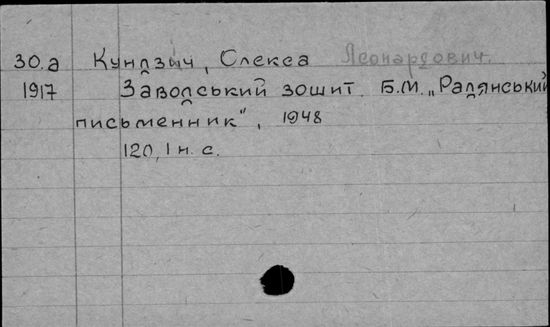 30.а Кундзыч, Олекса Леонардович.
1917 Заводський зошит. Б.М. „Радянський
письменник", 1948
120, 1 н. с.